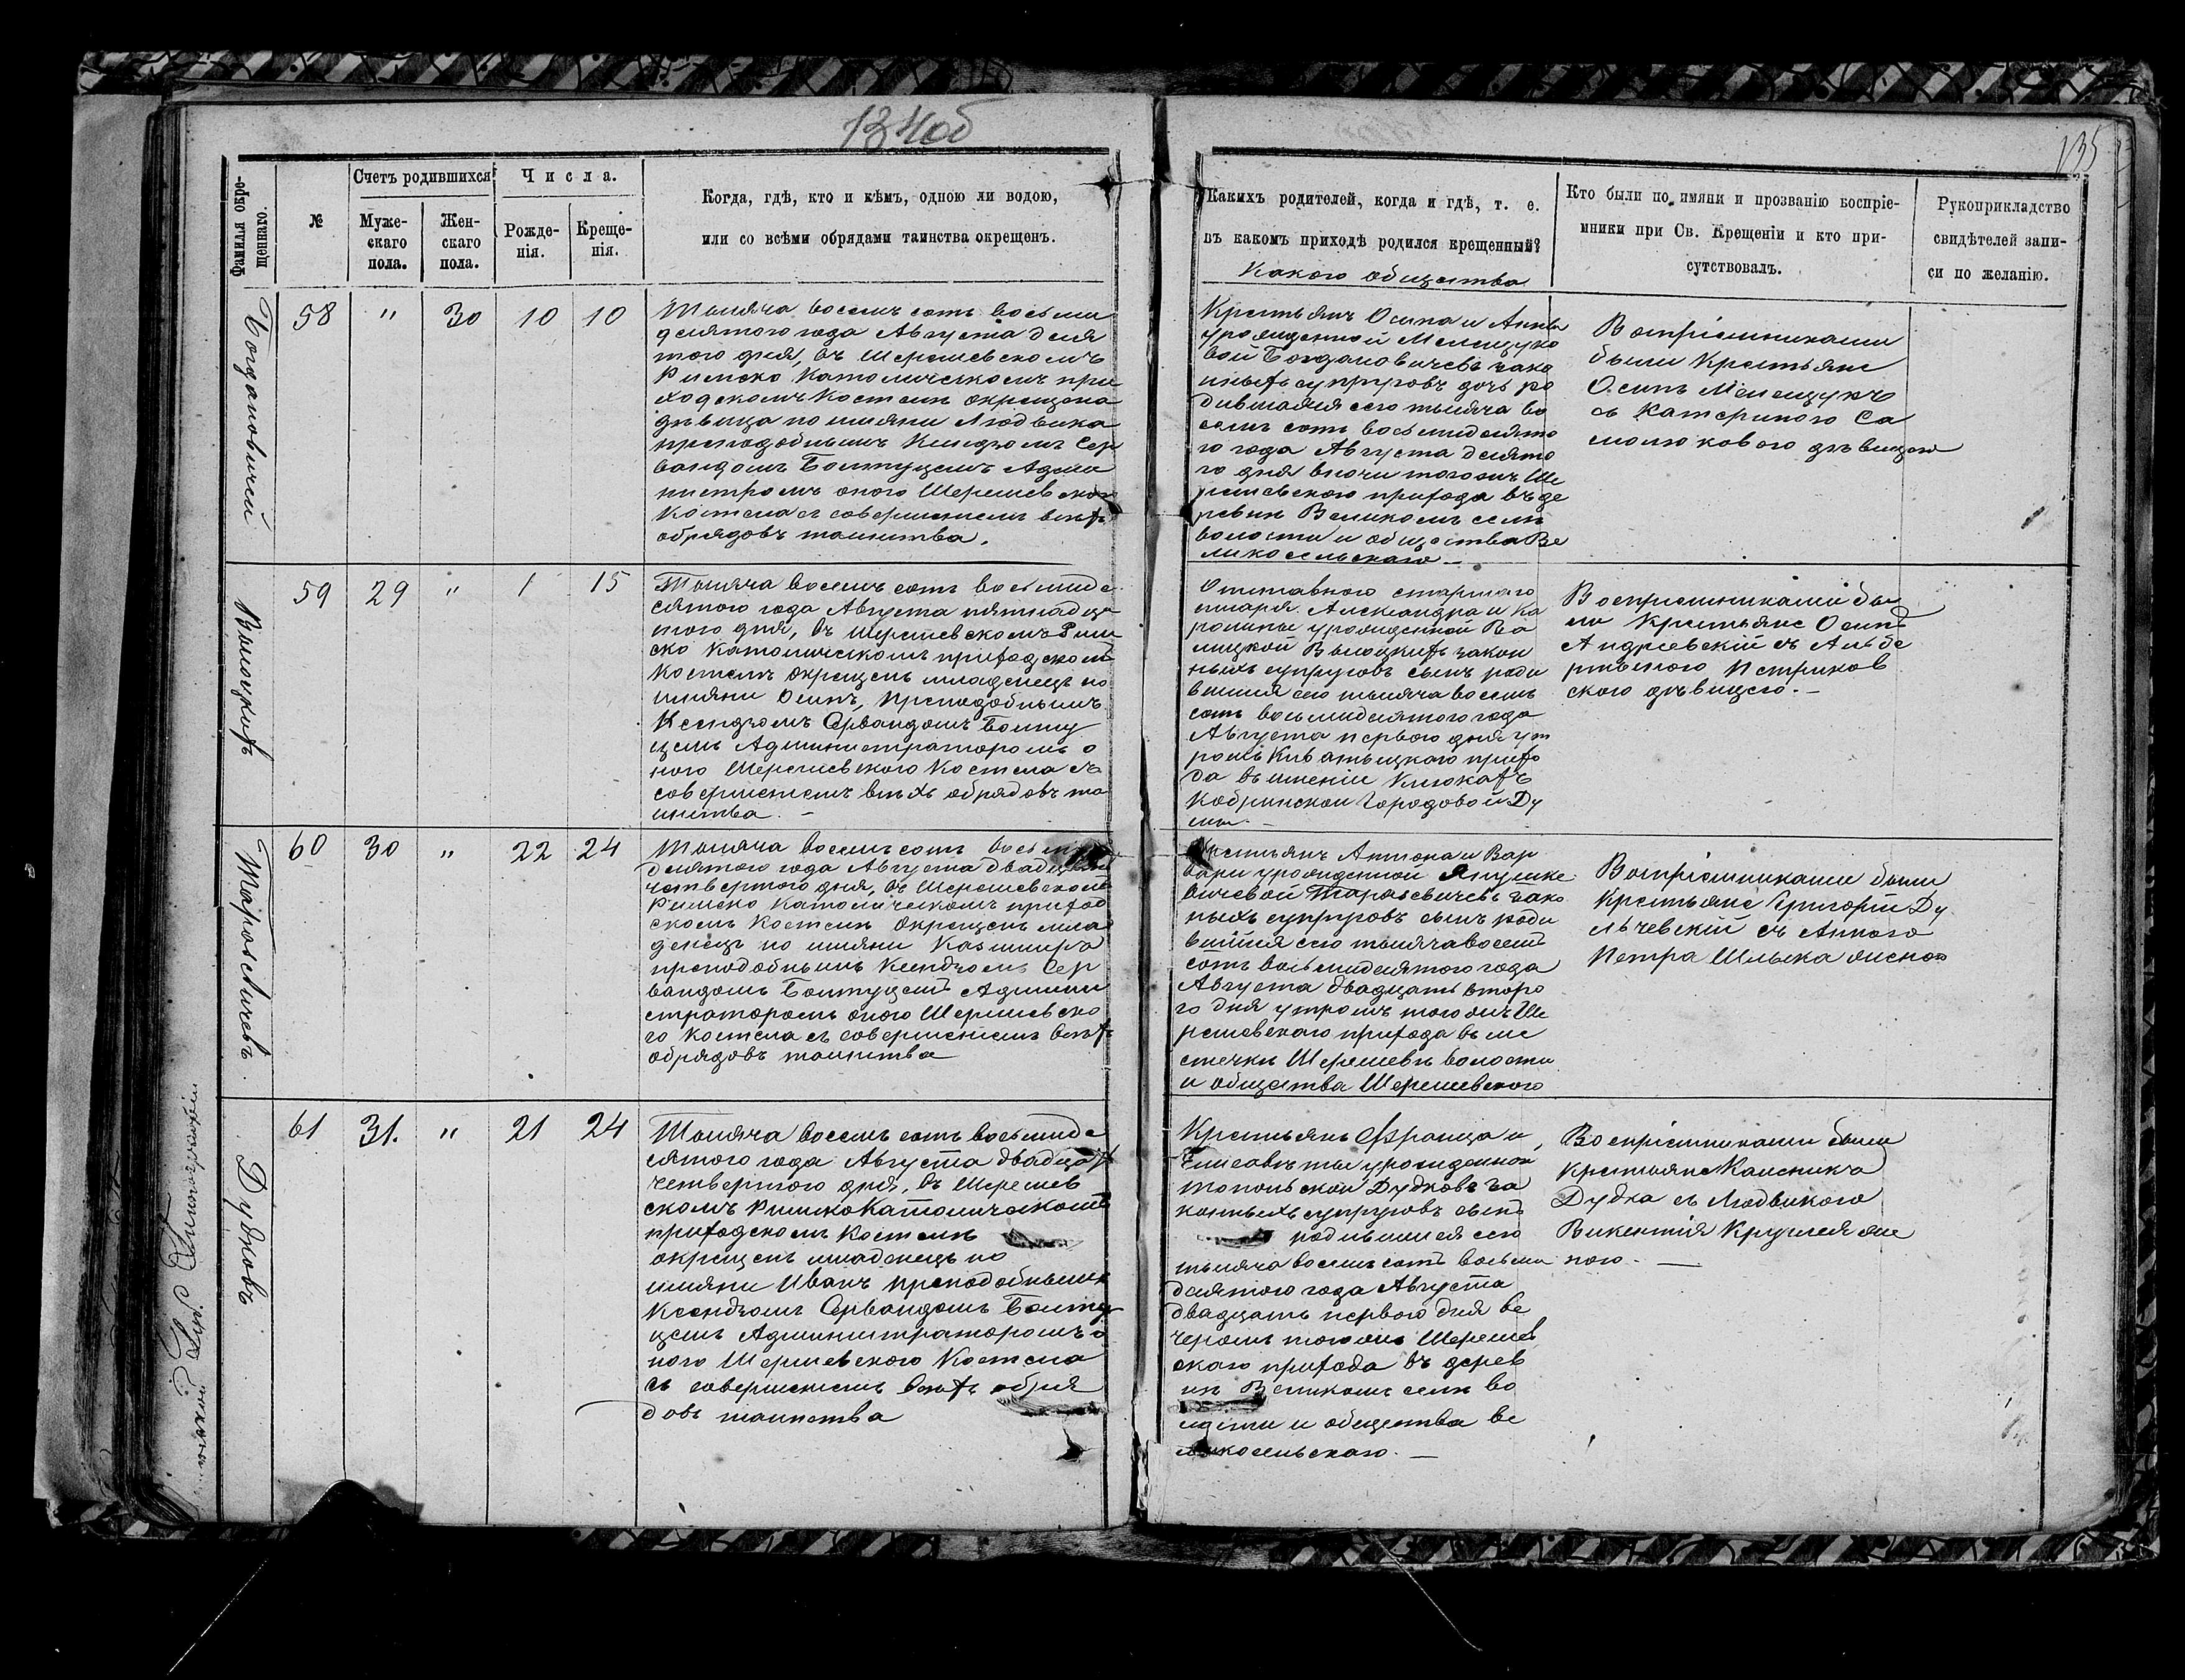 134об
135
Фамилія окре-
щеннаго.
№
Счетъ родившихся
Муже-
скаго
пола.
Жен-
скаго
пола.
Числа.
Рожде-
нія.
Креще-
нія.
Когда, гдѣ, кто и кѣмъ, одною ли водою,
или со всѣми обрядами таинства окрещенъ.
Каких родителей, когда и гдѣ, т. е.
въ какомъ приходѣ родился крещенный?
Какого общества
Кто были по имяни и прозванію воспріе-
мники при Св. Крещеніи и кто при-
сутствовалъ.
Рукоприкладство
свидѣтелей запи-
си по желанію.
Богдановичей
58 " 30 10 10
Тысяча восемь сотъ восьми
десятого года Августа деся
того дня, въ Шерешевскомъ
Римско Католическомъ при
ходскомъ Костелѣ окрещена
дѣвица по имяни Людвика
преподобнымъ Ксендзомъ Сер
вандомъ Болтуцемъ Адми
нистромъ оного Шерешевского
Костела съ совершеніем всѣхъ
обрядовъ таинства.
Крестьянъ Осипа и Анны
урожденной Мелещуко
вой Богдановичевъ зако
ныхъ супруговъ дочь ро
дившаяся сего тысяча во
семь сотъ восьмидесято
го года Августа десято
го дня вночи того жъ Ше
решевского прихода въ де
ревни Великомъ селѣ
волости и общества Ве
ликосельскаго —
Воспріемниками
были Крестьяне
Осипъ Мелещукъ
съ Катериного Са
молюкового дѣвицею
Волоцкихъ
59 29 " 1 15
Тысяча восемь сотъ восьмиде
сятого года Августа пятнадца
того дня, въ Шерешевскомъ Рим
ско Католическомъ приходскомъ
Костелѣ окрещенъ младенецъ по
имяни Осипъ, преподобнымъ
Ксендзомъ Сервандомъ Болту
цемъ Администраторомъ о
ного Шерешевского Костела съ
совершеніемъ всѣхъ обрядовъ та
инства. —
Отставного старшаго
писаря Александра и Ка
ролины урожденной Ва
лицкой Волоцкихъ закон
ныхъ супруговъ сынъ роди
вшійся сего тысяча восемь
сотъ восьмидесятого года
Августа первого дня ут
ромъ прихо
да въ имѣніи
Кобринской Городовой Ду
мы. —
Воспріемниками бы
ли Крестьяне Осипъ
Андріевскій съ Альбе
ртыного Петриков
ского дѣвицею. —
Тарасевичевъ
60 30 " 22 24
Тысяча восемь сотъ восьми
десятого года Августа двадцать
четвертого дня, въ Шерешевскомъ
Римско Католическомъ приход
скомъ Костелѣ окрещенъ мла
денецъ по имяни Казимиръ
преподобнымъ Ксендзомъ Сер
вандомъ Болтуцемъ Админи
страторомъ оного Шерешевско
го Костела съ совершеніемъ всѣхъ
обрядовъ таинства
Крестьянъ Антона и Вар
вары урожденной Янушке
вичевой Тарасевичевъ зако
ныхъ супруговъ сынъ роди
вшійся сего тысяча восемь
сотъ восьмидесятого года
Августа двадцать второ
го дня утромъ того жъ Ше
решевского прихода въ мѣ
стечкѣ Шерешевѣ волости
и общества Шерешевского
Воспріемниками были
Крестьяне Григорій Ду
льчевскій съ Анного
Петра женою
Дудковъ
61 31. " 21 24
Тысяча восемь сотъ восьмиде
сятого года Августа двадцать
четвертого дня, въ Шерешев
скомъ Римско Католическомъ
приходскомъ Костелѣ
окрещенъ младенецъ по
имяни Иванъ преподобнымъ
Ксендзомъ Сервандомъ Болту
цемъ Администраторомъ о
ного Шерешевского Костела
съ совершеніемъ всѣхъ обря
довъ таинства
Крестьянъ Франца и
Елисаветы урожденной
Топольской Дудковъ за
конныхъ супруговъ сынъ
родившійся сего
тысяча восемь сотъ восьми
десятого года Августа
двадцать первого дня ве
черомъ того жъ Шерешев
ского прихода въ дерев
нѣ Великомъ селѣ во
лости и общества Ве
ликосельскаго. —
Воспріемниками были
Крестьяне
Дудка съ Людвикого
Викентія Круглея же
ною. —